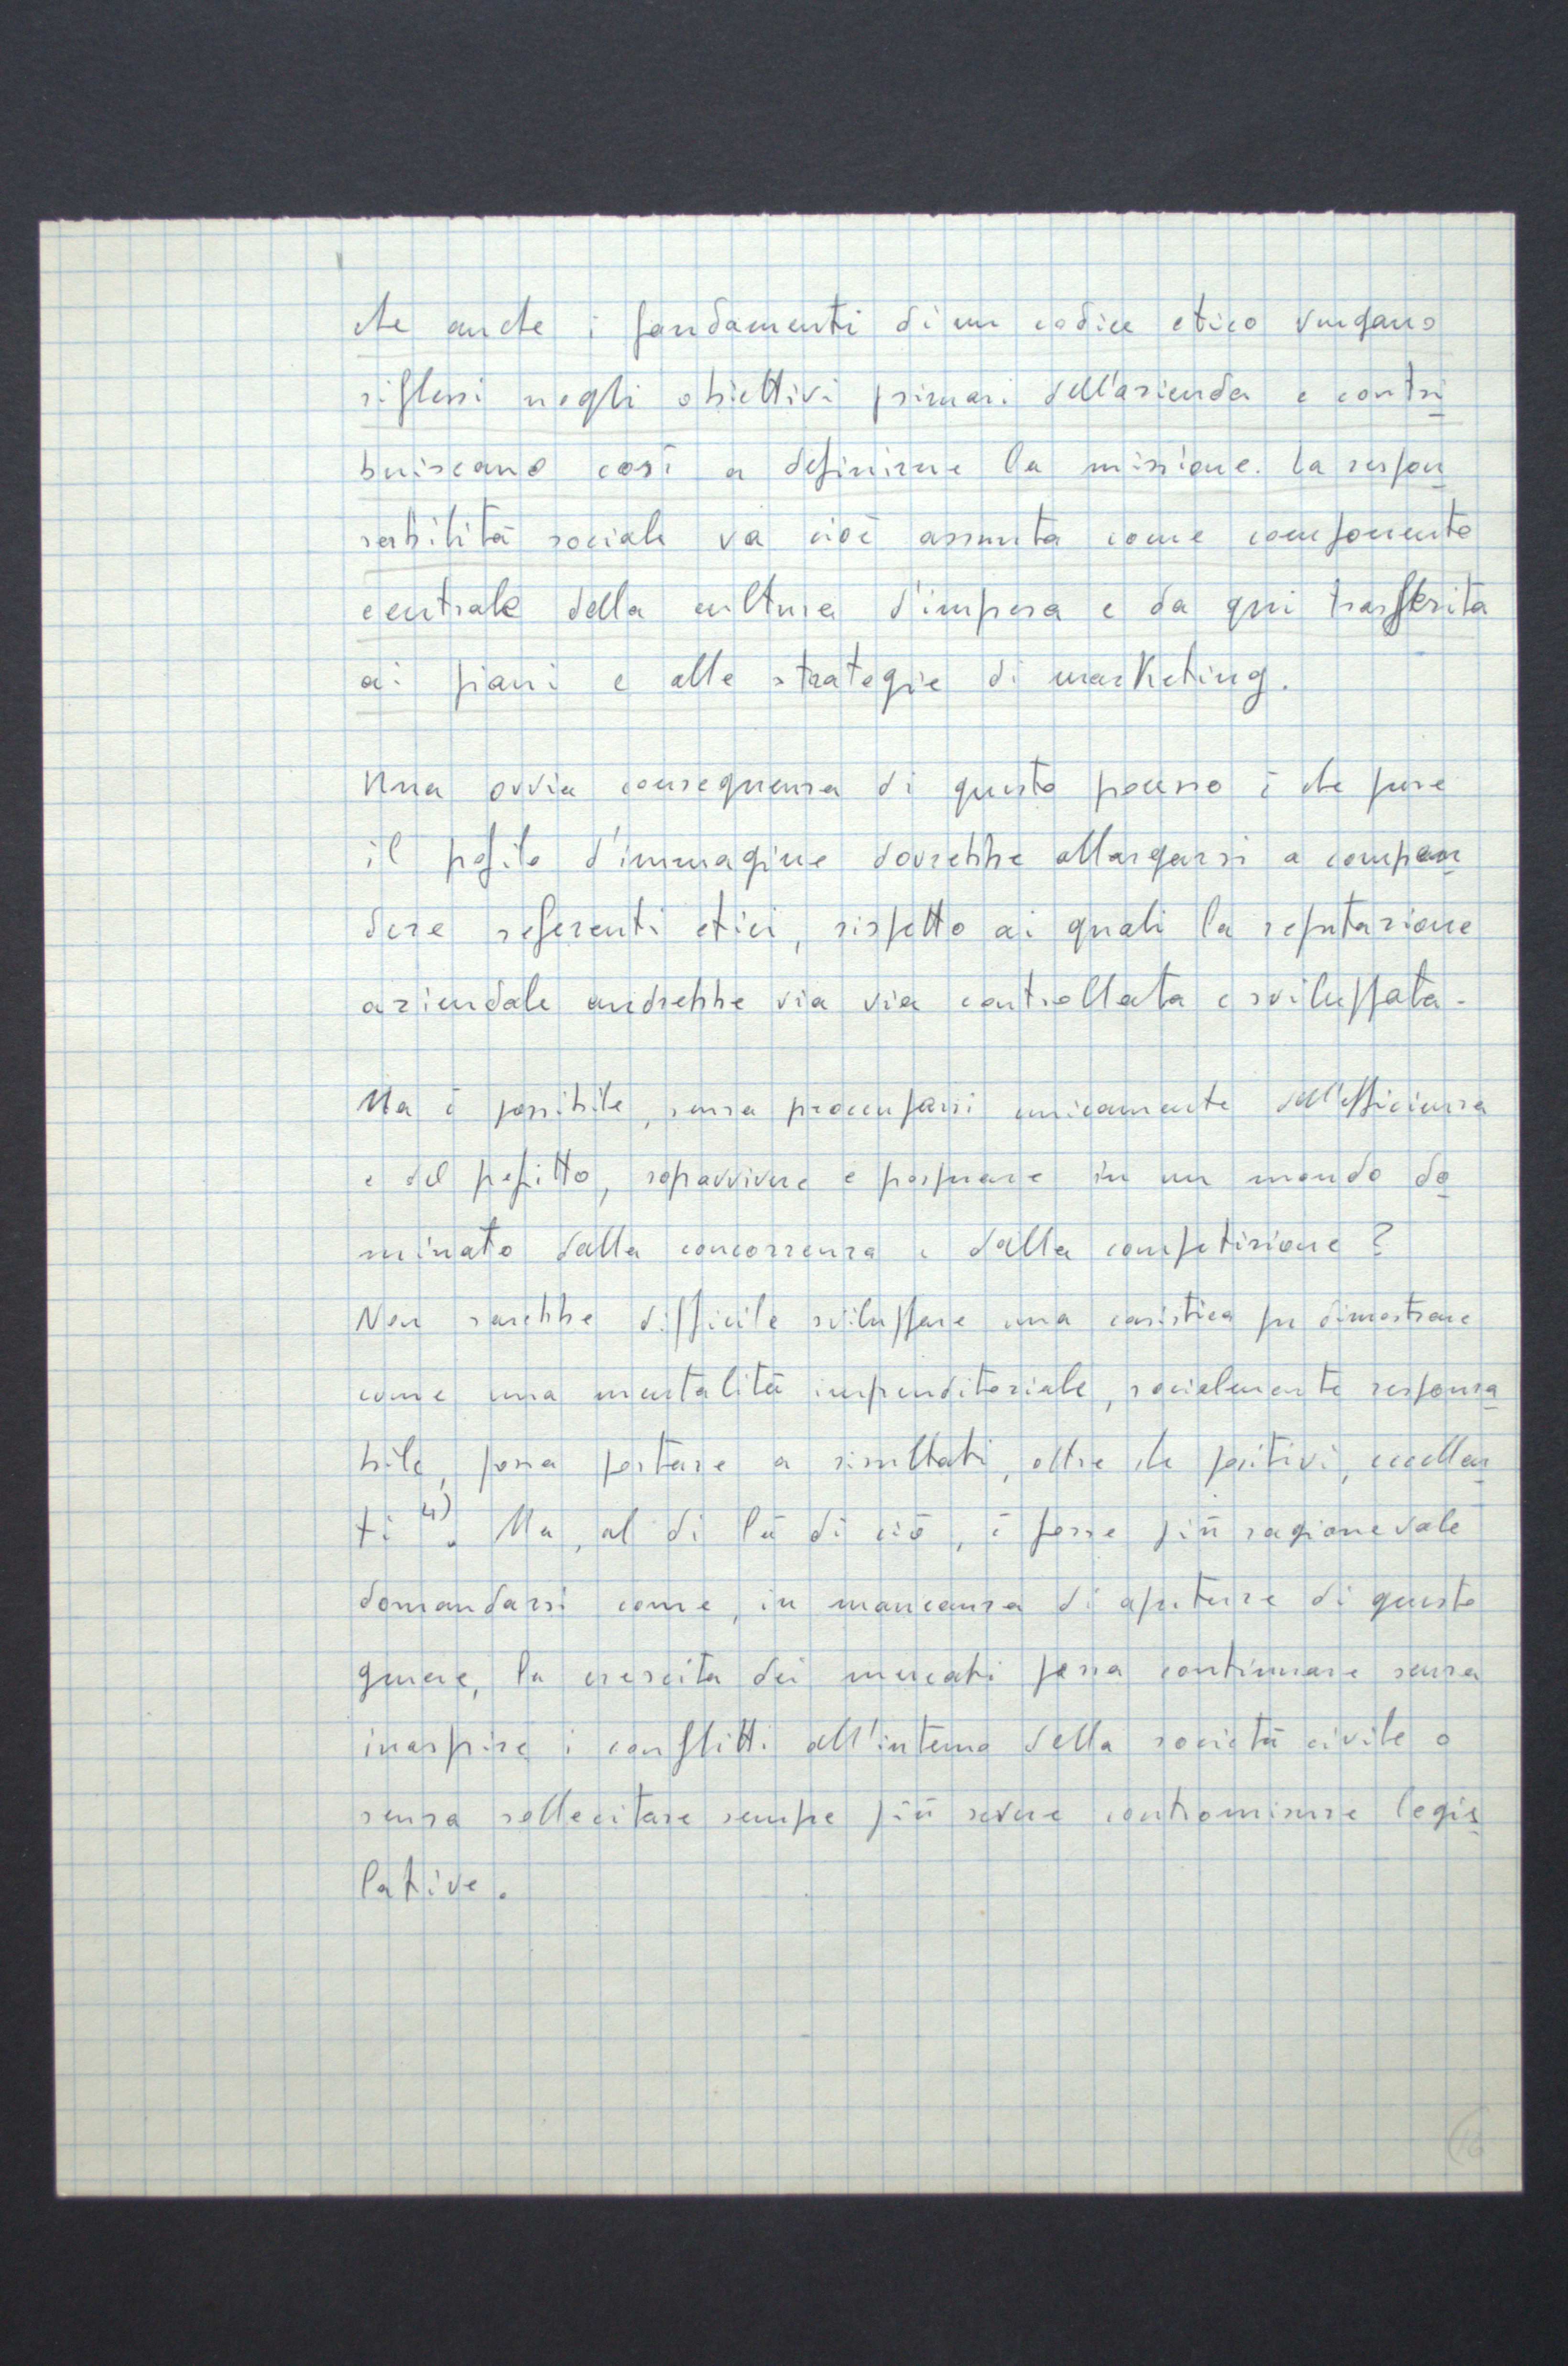 che anche i fondamenti di un codice etico vengano
riflessi negli obiettivi primari dell'azienda e contri
buiscano così a definirne la missione. La respon
sabilità sociale va cioè assunta come componente
centrale della cultura d'impresa e da qui trasferita
ai piani e alle strategie di marketing.
Una ovvia conseguenza di questo processo è che pure
il profilo d'immagine dovrebbe allargarsi a compren
dere referenti etici, rispetto ai quali la reputazione
aziendale andrebbe via via controllata e sviluppata.
Ma è possibile, senza preoccuparsi unicamente dell'efficienza
e del profitto, sopravvivere e prosperare in un mondo do
minato dalla concorrenza e dalla competizione?
Non sarebbe difficile sviluppare una casistica per dimostrare
come una mentalità imprenditoriale, socialmente responsa
bile, possa portare a risultati, oltre che positivi, eccellen
ti 4). Ma, al di là di ciò, è forse più ragionevole
domandarsi come, in mancanza di aperture di questo
genere, la crescita dei mercati possa continuare senza
inasprire i conflitti all'interno della società civile o
senza sollecitare sempre più severe contromisure legis
lative.
16